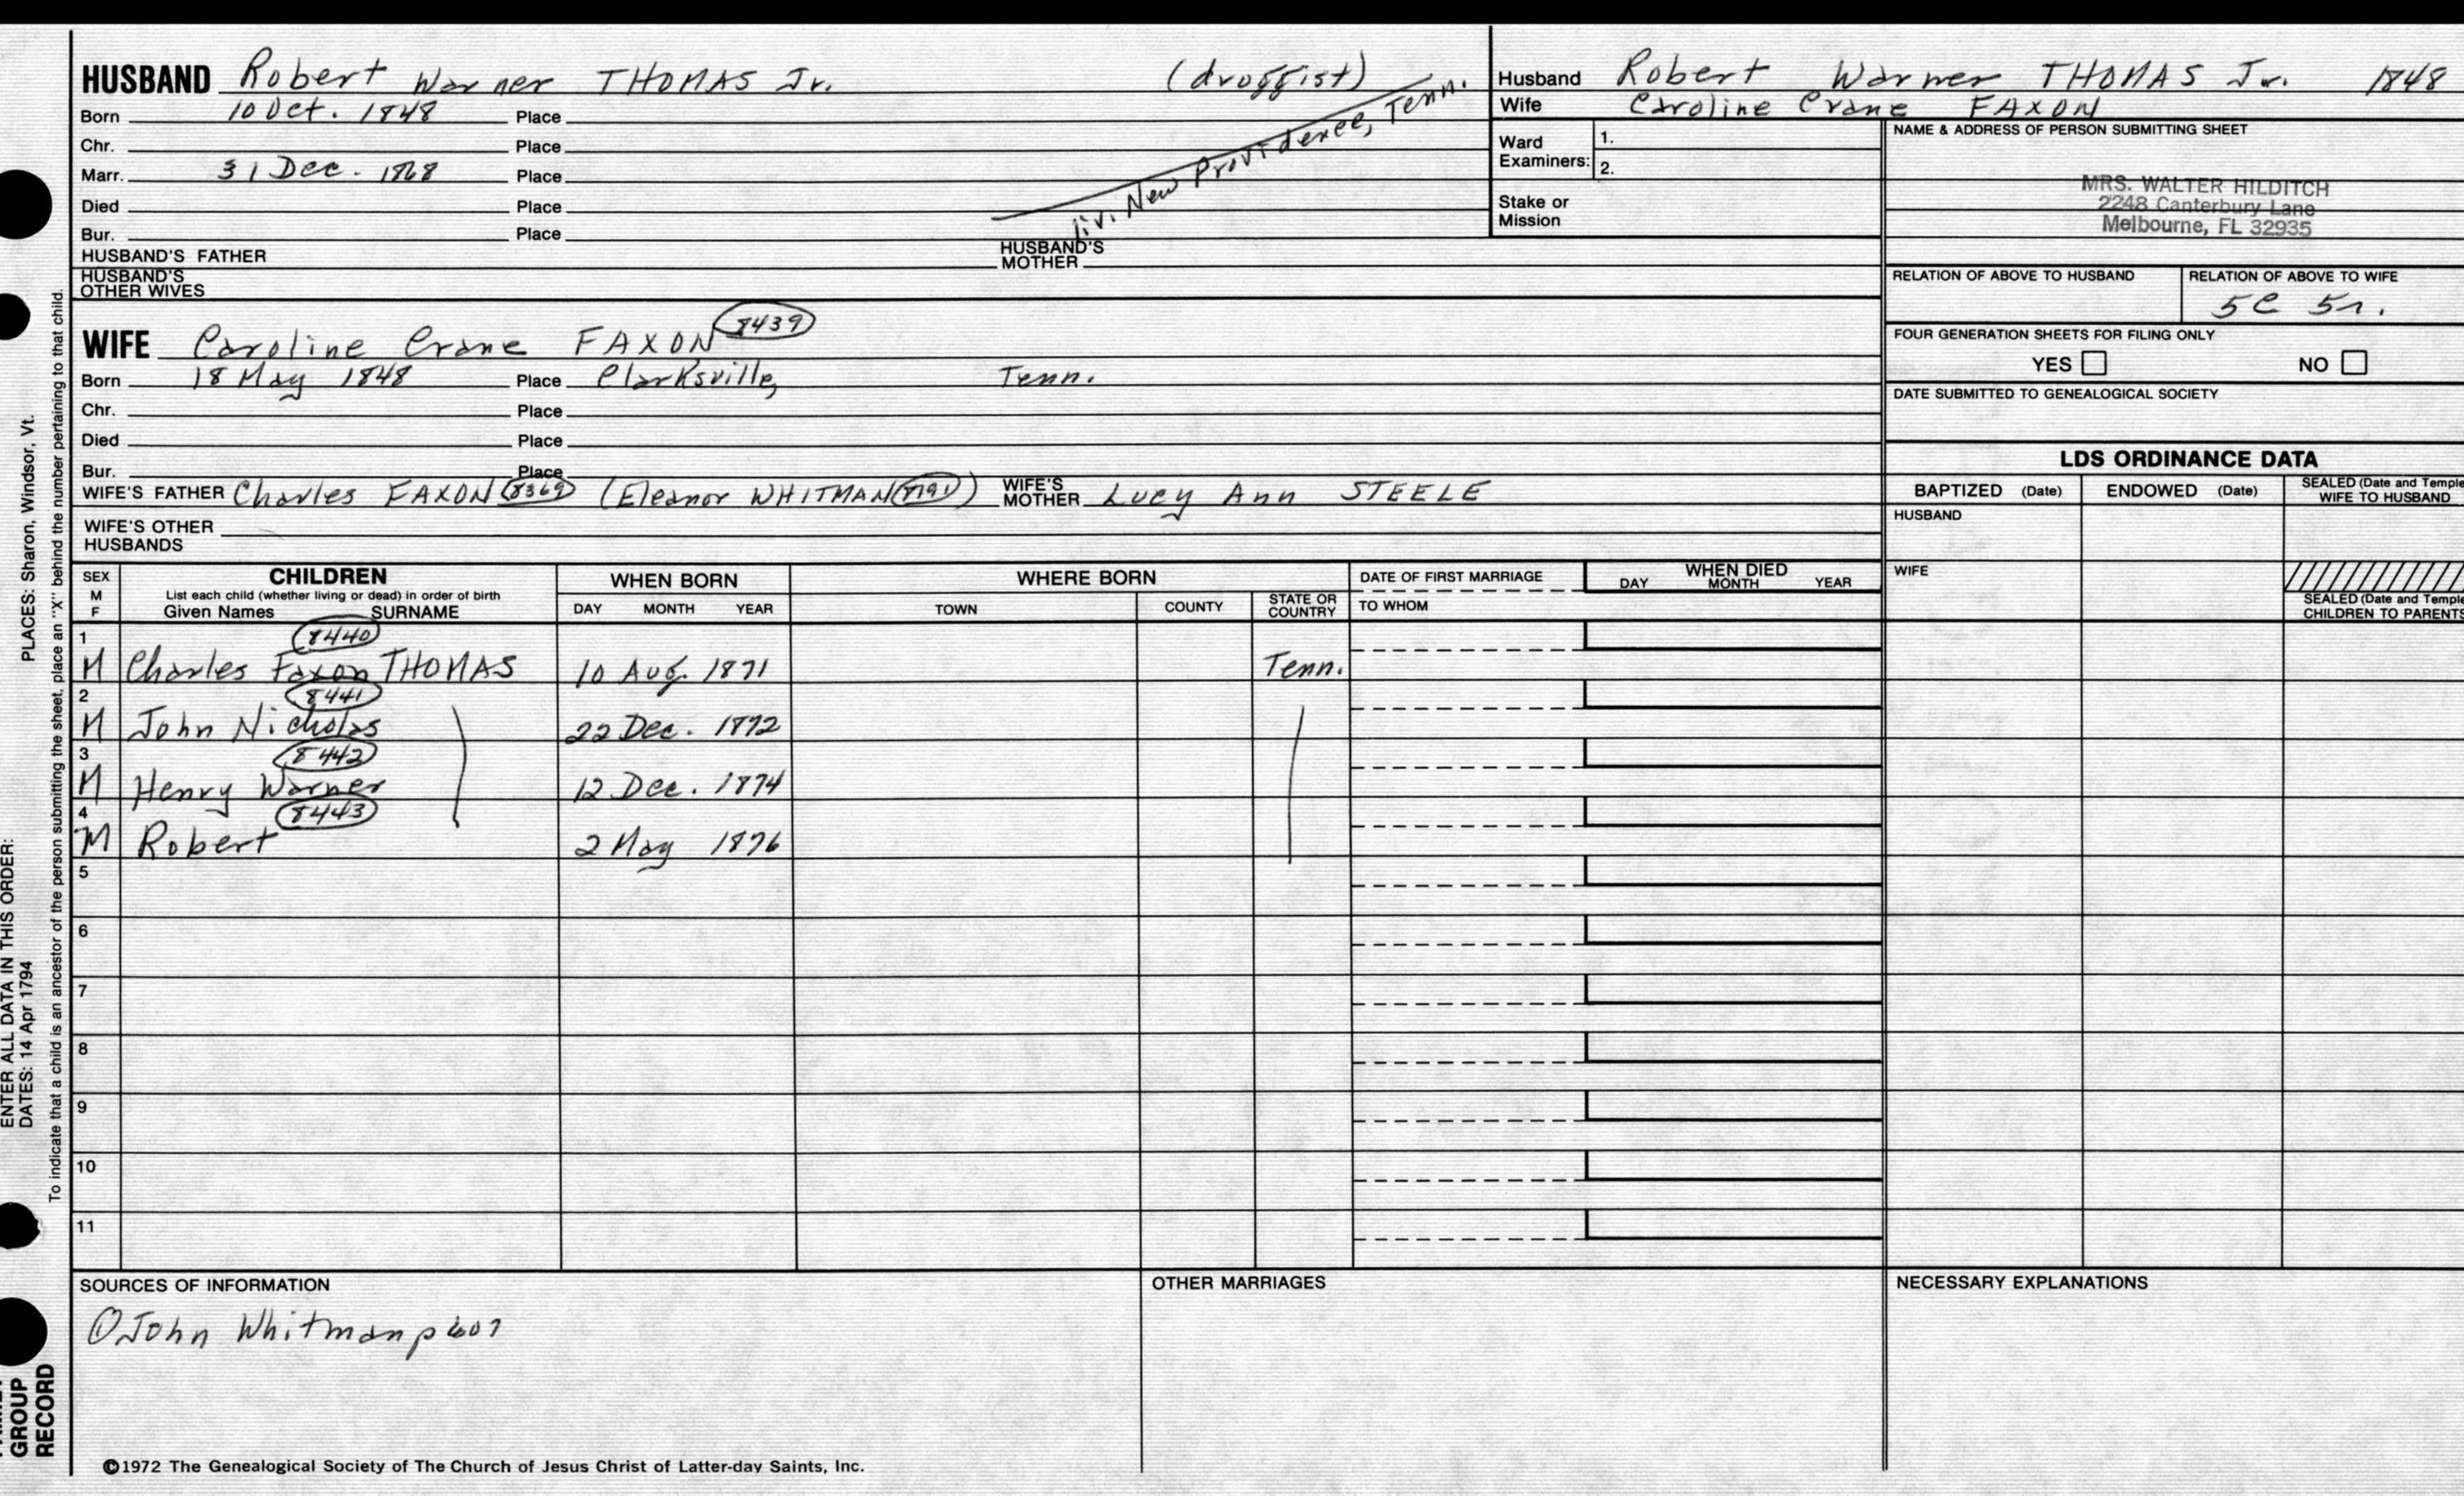 HUSBAND Robert Warner THOMAS Jr. (druggist)
Born 10 Oct. 1848 Place
Chr. Place
Marr. 31 Dec. 1868 Place
Died Place
Bur. Place
liv. New Providence, Tenn.
HUSBAND'S FATHER HUSBAND'S MOTHER
HUSBAND'S OTHER WIVES
Husband Robert Warner THOMAS Jr. 1848
Wife Caroline Crane FAXON
Ward Examiners: 1.
2.
Stake or Mission
NAME & ADDRESS OF PERSON SUBMITTING SHEET
MRS. WALTER HILDITCH
2248 Canterbury Lane
Melbourne, FL 32935
RELATION OF ABOVE TO HUSBAND RELATION OF ABOVE TO WIFE
5C 5r.
FOUR GENERATION SHEETS FOR FILING ONLY
YES NO
DATE SUBMITTED TO GENEALOGICAL SOCIETY
WIFE Caroline Crane FAXON 8439
Born 18 May 1848 Place Clarksville, Tenn.
Chr. Place
Died Place
Bur. Place
WIFE'S FATHER Charles FAXON 8369 (Eleanor WHITMAN 8191) WIFE'S MOTHER Lucy Ann STEELE
WIFE'S OTHER HUSBANDS
LDS ORDINANCE DATA
BAPTIZED (Date) ENDOWED (Date) SEALED (Date and Temple) WIFE TO HUSBAND
HUSBAND
WIFE
SEALED (Date and Temple) CHILDREN TO PARENTS
SEX M F
CHILDREN
List each child (whether living or dead) in order of birth
Given Names SURNAME
WHEN BORN
DAY MONTH YEAR
WHERE BORN
TOWN COUNTY STATE OR COUNTRY
DATE OF FIRST MARRIAGE
TO WHOM
WHEN DIED
DAY MONTH YEAR
1 8440
M Charles Faxon THOMAS 10 Aug. 1871 Tenn.
2 8441
M John Nicholas 22 Dec. 1872
3 8442
M Henry Warner 12 Dec. 1874
4 8443
M Robert 2 May 1876
5
6
7
8
9
10
11
SOURCES OF INFORMATION
① John Whitman p 607
OTHER MARRIAGES
NECESSARY EXPLANATIONS
©1972 The Genealogical Society of The Church of Jesus Christ of Latter-day Saints, Inc.
ENTER ALL DATA IN THIS ORDER:
DATES: 14 Apr 1794 PLACES: Sharon, Windsor, Vt.
To indicate that a child is an ancestor of the person submitting the sheet, place an "X" behind the number pertaining to that child.
GROUP
RECORD